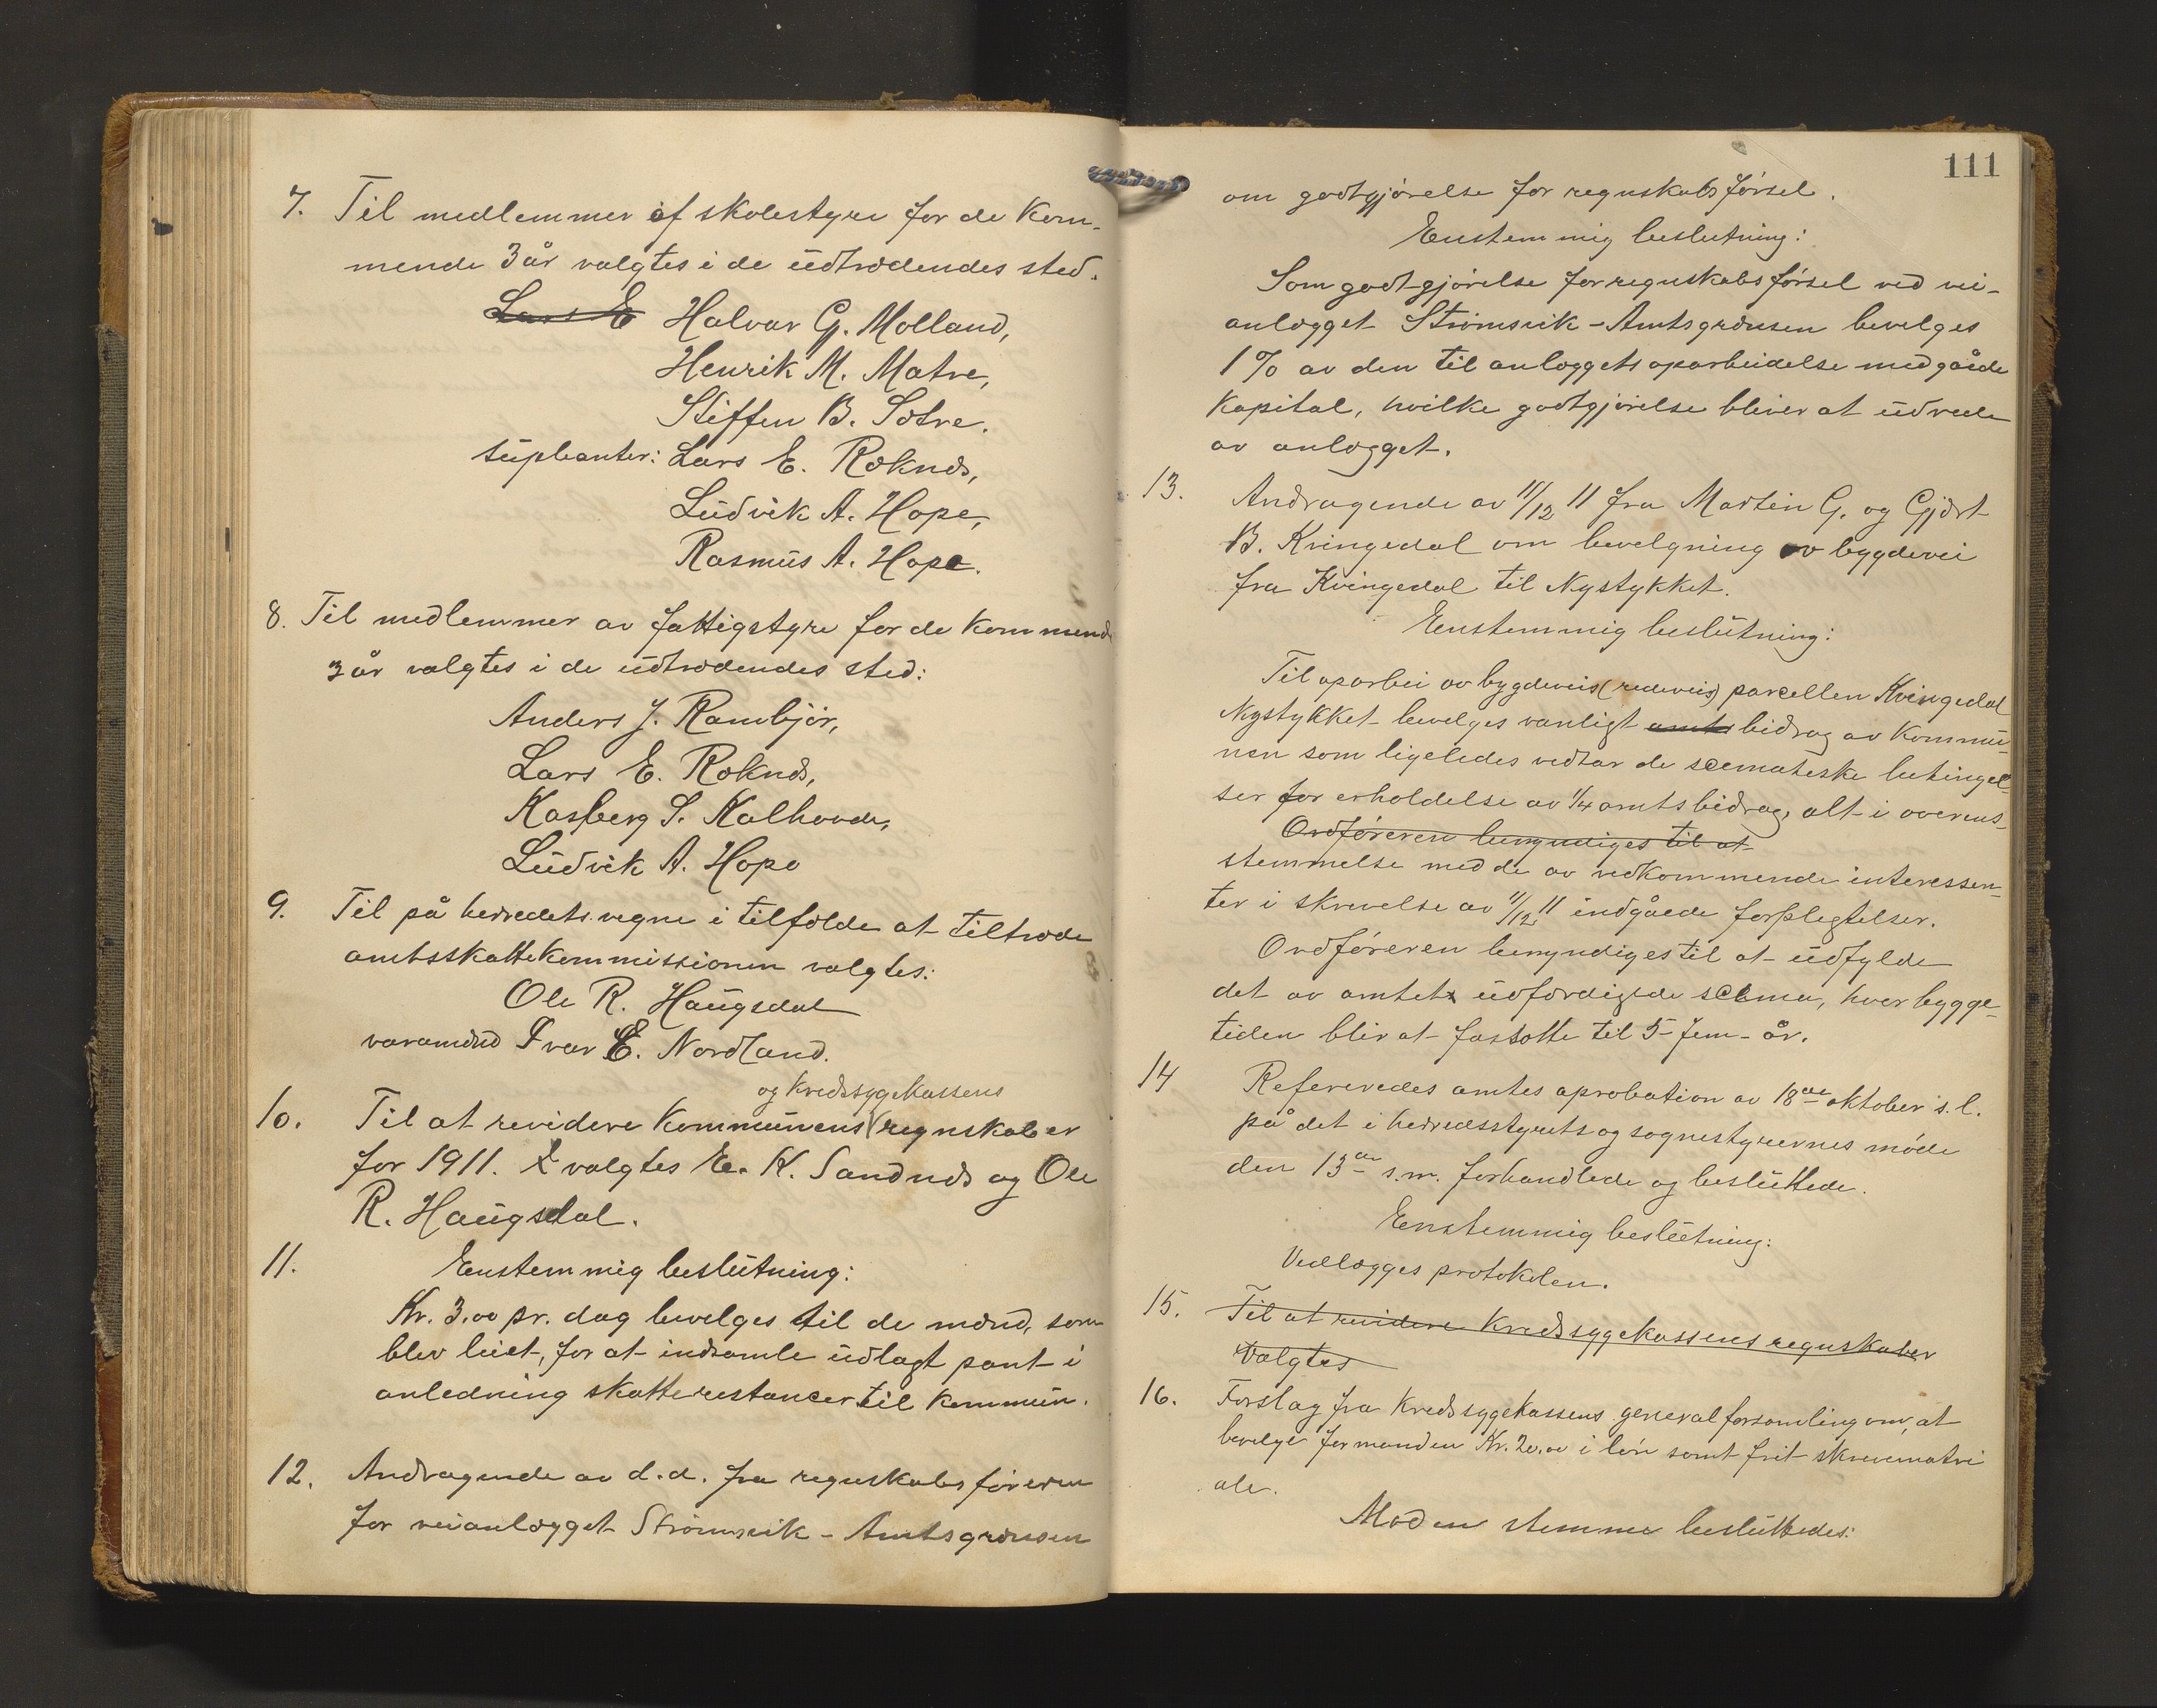 7. Til medlemmer af skolestyre for de kom-
mende 3 år valgtes i de udtrædendes sted.
Lars E Halvar G. Molland,
Henrik M. Matre,
Steffen B. Sætre.
supleanter: Lars E. Røknæs,
Ludvik A. Hope,
Rasmus A. Hope.
8. Til medlemmer av fattigstyre for de kommende
3 år valgtes i de udtrædendes sted:
Anders J. Rambjør,
Lars E. Røknæs,
Kasberg S. Kalhovde,
Ludvik A. Hope
9. Til på herredets vegne i tilfælde at tiltræde
amtsskattekommissionen valgtes:
Ole R. Haugsdal
varamænd Ivar E. Nordland.
og kredssygekassens
10. Til at revidere kommunens regnskaber
for 1911. valgtes E. K. Sandnæs og Ole
R. Haugsdal.
11. Enstemmig beslutning:
Kr. 3.00 pr. dag bevelges til de mænd, som
blev leiet, for at indsamle udlagt pant i
anledning skatterestancer til kommun.
12. Andragende av d.d. fra regnskabsføreren
for veianlægget Strømsvik - Amtsgrænsen
111
om godtgjørelse for regnskabsførsel.
Enstemmig beslutning:
Som godtgjørelse for regnskabsførsel ved vei-
anlægget Strømsvik - Amtsgrænsen bevelges
1% av den til anlæggets oparbeidelse medgåede
kapital, hvilke godtgjørelse bliver at udrede
av anlægget.
13. Andragende av 11/12 11 fra Martin G. og Gjært
B. Kvingedal om bevelgning av bygdevei
fra Kvingedal til Nystykket.
Enstemmig beslutning:
Til oparbei av bygdeveis (redeveis) parcellen Kvingedal
Nystykket bevelges vanligt amts bidrag av kommu-
nen som ligeledes vedtar de scematiske betingel-
ser for erholdelse av 1/4 amtsbidrag, alt i overens-
Ordføreren bemyndiges til at
stemmelse med de av vedkommende interessen-
ter i skrivelse av 11/12 11 indgåede forplegtelser.
Ordføreren bemyndiges til at udfylde
det av amtet udfærdigede scema, hvor bygge-
tiden blir at fastsætte til 5 - fem - år.
14 Refereredes amtes aprobation av 18de oktober s.l.
på det i herredsstyrets og sognestyrernes møde
den 13de s.m. forhandlede og besluttede.
Enstemmig beslutning:
Vedlægges protokolen.
15. Til at revidere kredssygekassens regnskaber
valgtes
16. Forslag fra kredssygekassens generalforsamling om, at
bevelge formanden Kr. 20.00 i løn samt frit skrivematri
ale.
Mod en stemme besluttedes: